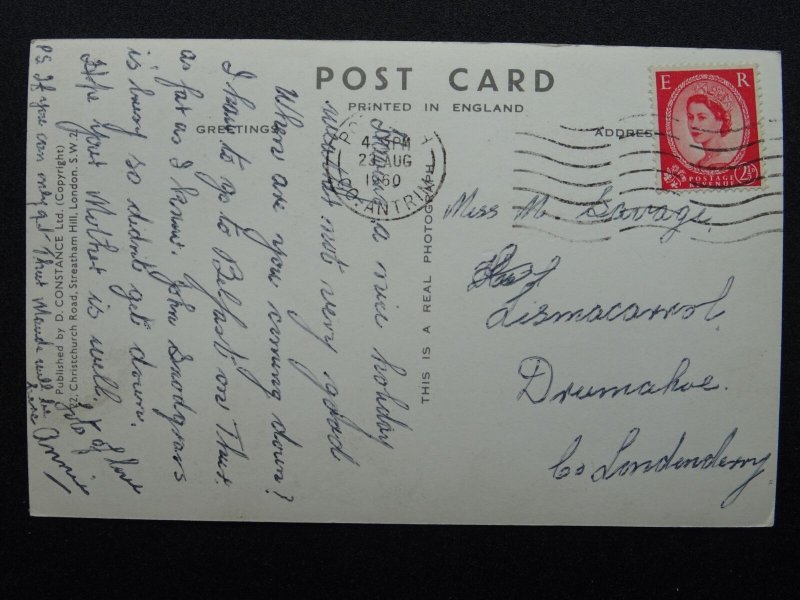 POST CARD
PRINTED IN ENGLAND
GREETINGS
ADDRESS
E R
POSTAGE REVENUE 2½
4. PM
23 AUG
1960
CO. ANTRIM
Having a nice holiday
not very good
When are you coming down?
I have to go to Belfast on Thur.
as far as I know. John Snodgrass
is busy so didn't get down.
Hope your Mother is well.
lots of love
Annie
PS If you can only get Thur Maude will be here
Published by D. CONSTANCE Ltd. (Copyright)
Christchurch Road, Streatham Hill, London. S.W.2.
THIS IS A REAL PHOTOGRAPH
Miss M. Savage,
Lismacarrol
Drumahoe.
Co Londonderry